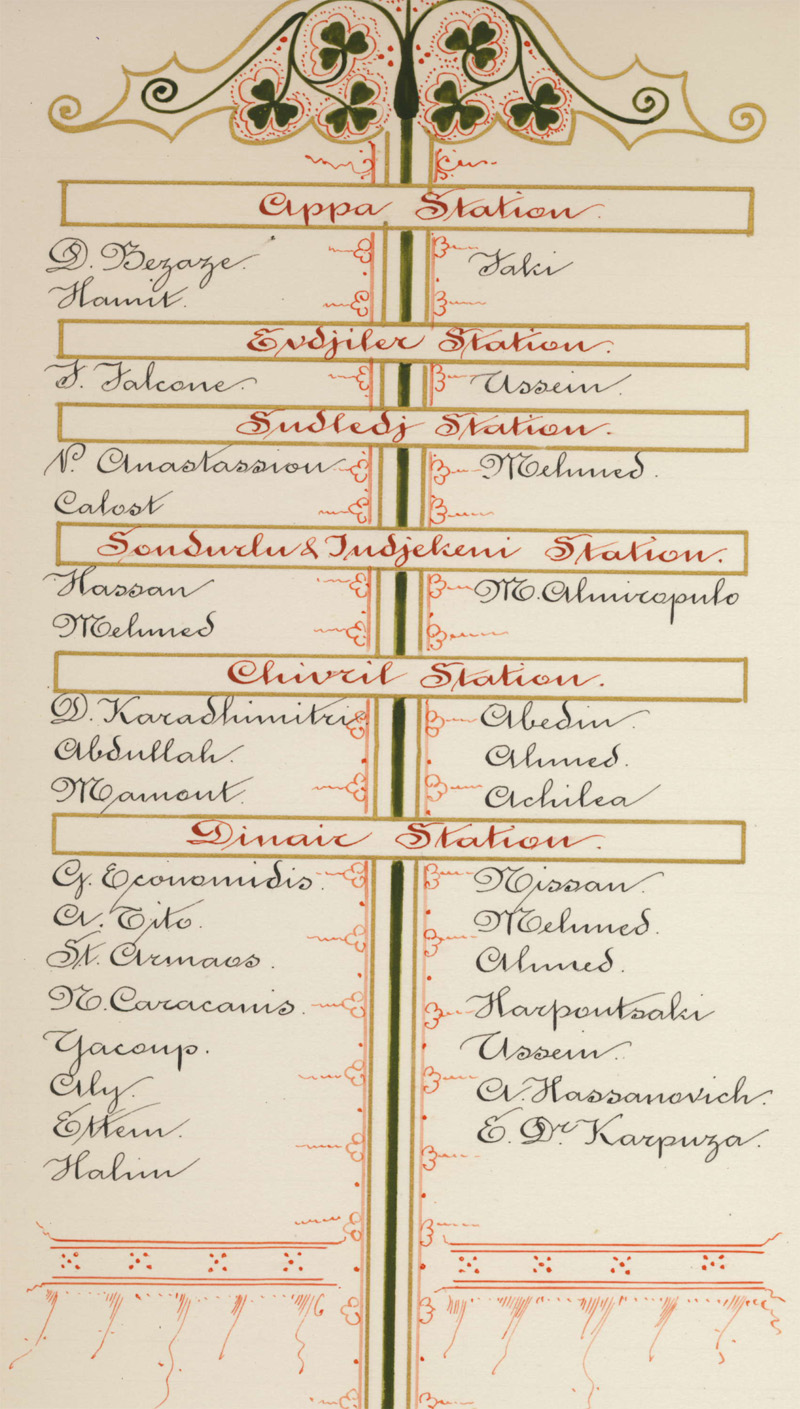 Appa Station.
D. Bezaze.
Hamit.
Faki
Evdjiler Station.
F. Falcone.
Ussein.
Sudledj Station.
N. Anastassiou
Calost
Mehmed.
Sondurlu & Indjekeni Station.
Hassan
Mehmed
M. Almiropulo
Chivril Station.
D. Karadhimitris
Abdullah.
Mamout.
Abedin.
Ahmed.
Achilea
Dinair Station.
G. Economidis.
A. Tito.
St. Armaos.
N. Caracanis.
Yacoup.
Aly.
Ettem.
Halim
Nissan.
Mehmed.
Ahmed.
Harpoutsaki
Ussein.
A. Hassanovich.
E. Dr Karpuza.